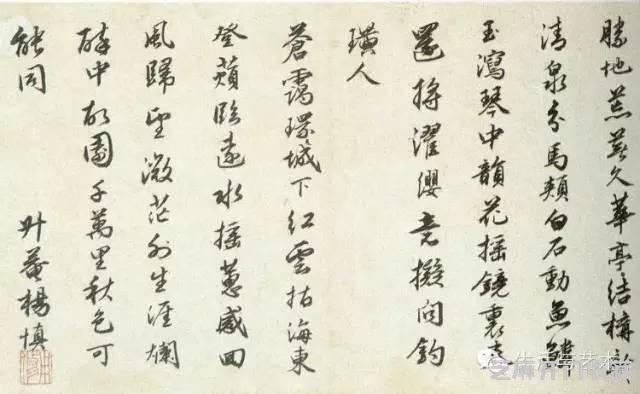 勝地荒蕪久華亭結構新
清泉分馬頰白石動魚鱗
玉瀉琴中韻花搖鏡裏春
還將濯纓意擬問釣
璜人
蒼靄環城下紅雲指海東
登蘋臨遠水搖蕙感回
風歸望微茫外生涯爛
醉中故園千萬里秋色可
能同
升菴楊慎